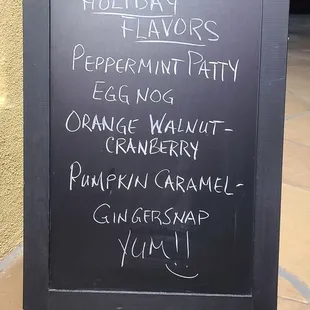 HOLIDAY
FLAVORS
PEPPERMINT PATTY
EGG NOG
ORANGE WALNUT-
CRANBERRY
PUMPKIN CARAMEL-
GINGERSNAP
YUM!!